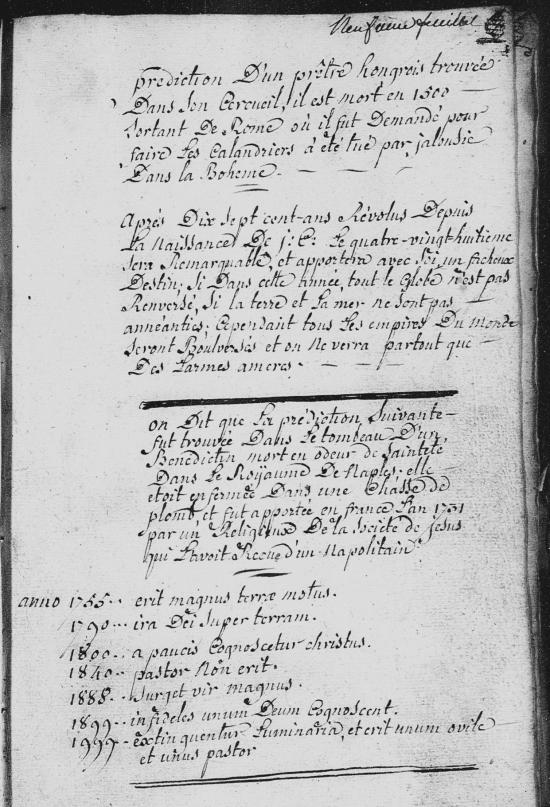 Neufieme feuillet
prediction D'un prêtre hongrois trouvée
Dans son Cercueil, il est mort en 1500
sortant De Rome où il fut Demandé pour
faire Les Calandriers à été tué par jalousie
Dans la Boheme.
Après Dix sept cent-ans Révolus Depuis
La Naissance De j: C: Le quatre-vingt-huitieme
sera Remarquable, et apportera avec soi, un ficheux
Destin, si Dans cette année, tout le Globe n'est pas
Renversé, si la terre et La mer ne sont pas
annéanties; Cependant tous Les empires Du Monde
seront Boulversés et on Ne verra partout que
Des Larmes ameres.
on Dit que La prédiction suivante
fut trouvée Dans Le tombeau D'un
Benedictin mort en odeur de sainteté
Dans Le Roÿaume De Naples. elle
étoit enfermée Dans une Chasse de
plomb, et fut apportée en france L'an 1731
par un Religieux De la Societé de Jesus
qui L'avoit Recue d'un Napolitain.
anno 1755.. erit magnus terræ motus.
1790.. ira Dei super terram.
1800.. a paucis Cognoscetur christus.
1840.. pastor Non erit.
1888. surget vir magnus.
1899.. infideles unum Deum Cognoscent.
1999.. extinquentur Luminaria, et erit unum ovile
et unus pastor